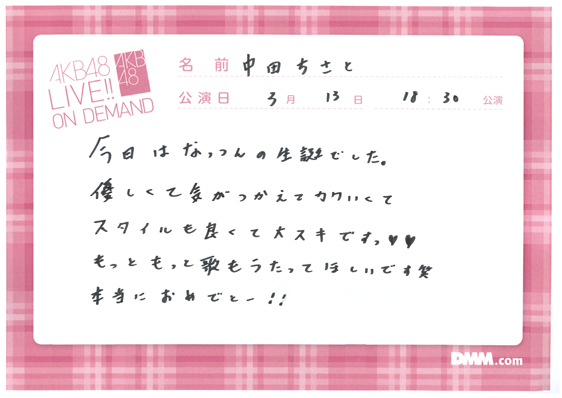 AKB48
LIVE!!
ON DEMAND
AKB
48
名 前 中田ちさと
公演日 3月 13日 18:30 公演
今日はなっつんの生誕でした。
優しくて気がつかえてカワいくて
スタイルも良くて大スキですっ♥♥
もっともっと歌もうたってほしいです笑
本当におめでとー!!
DMM.com